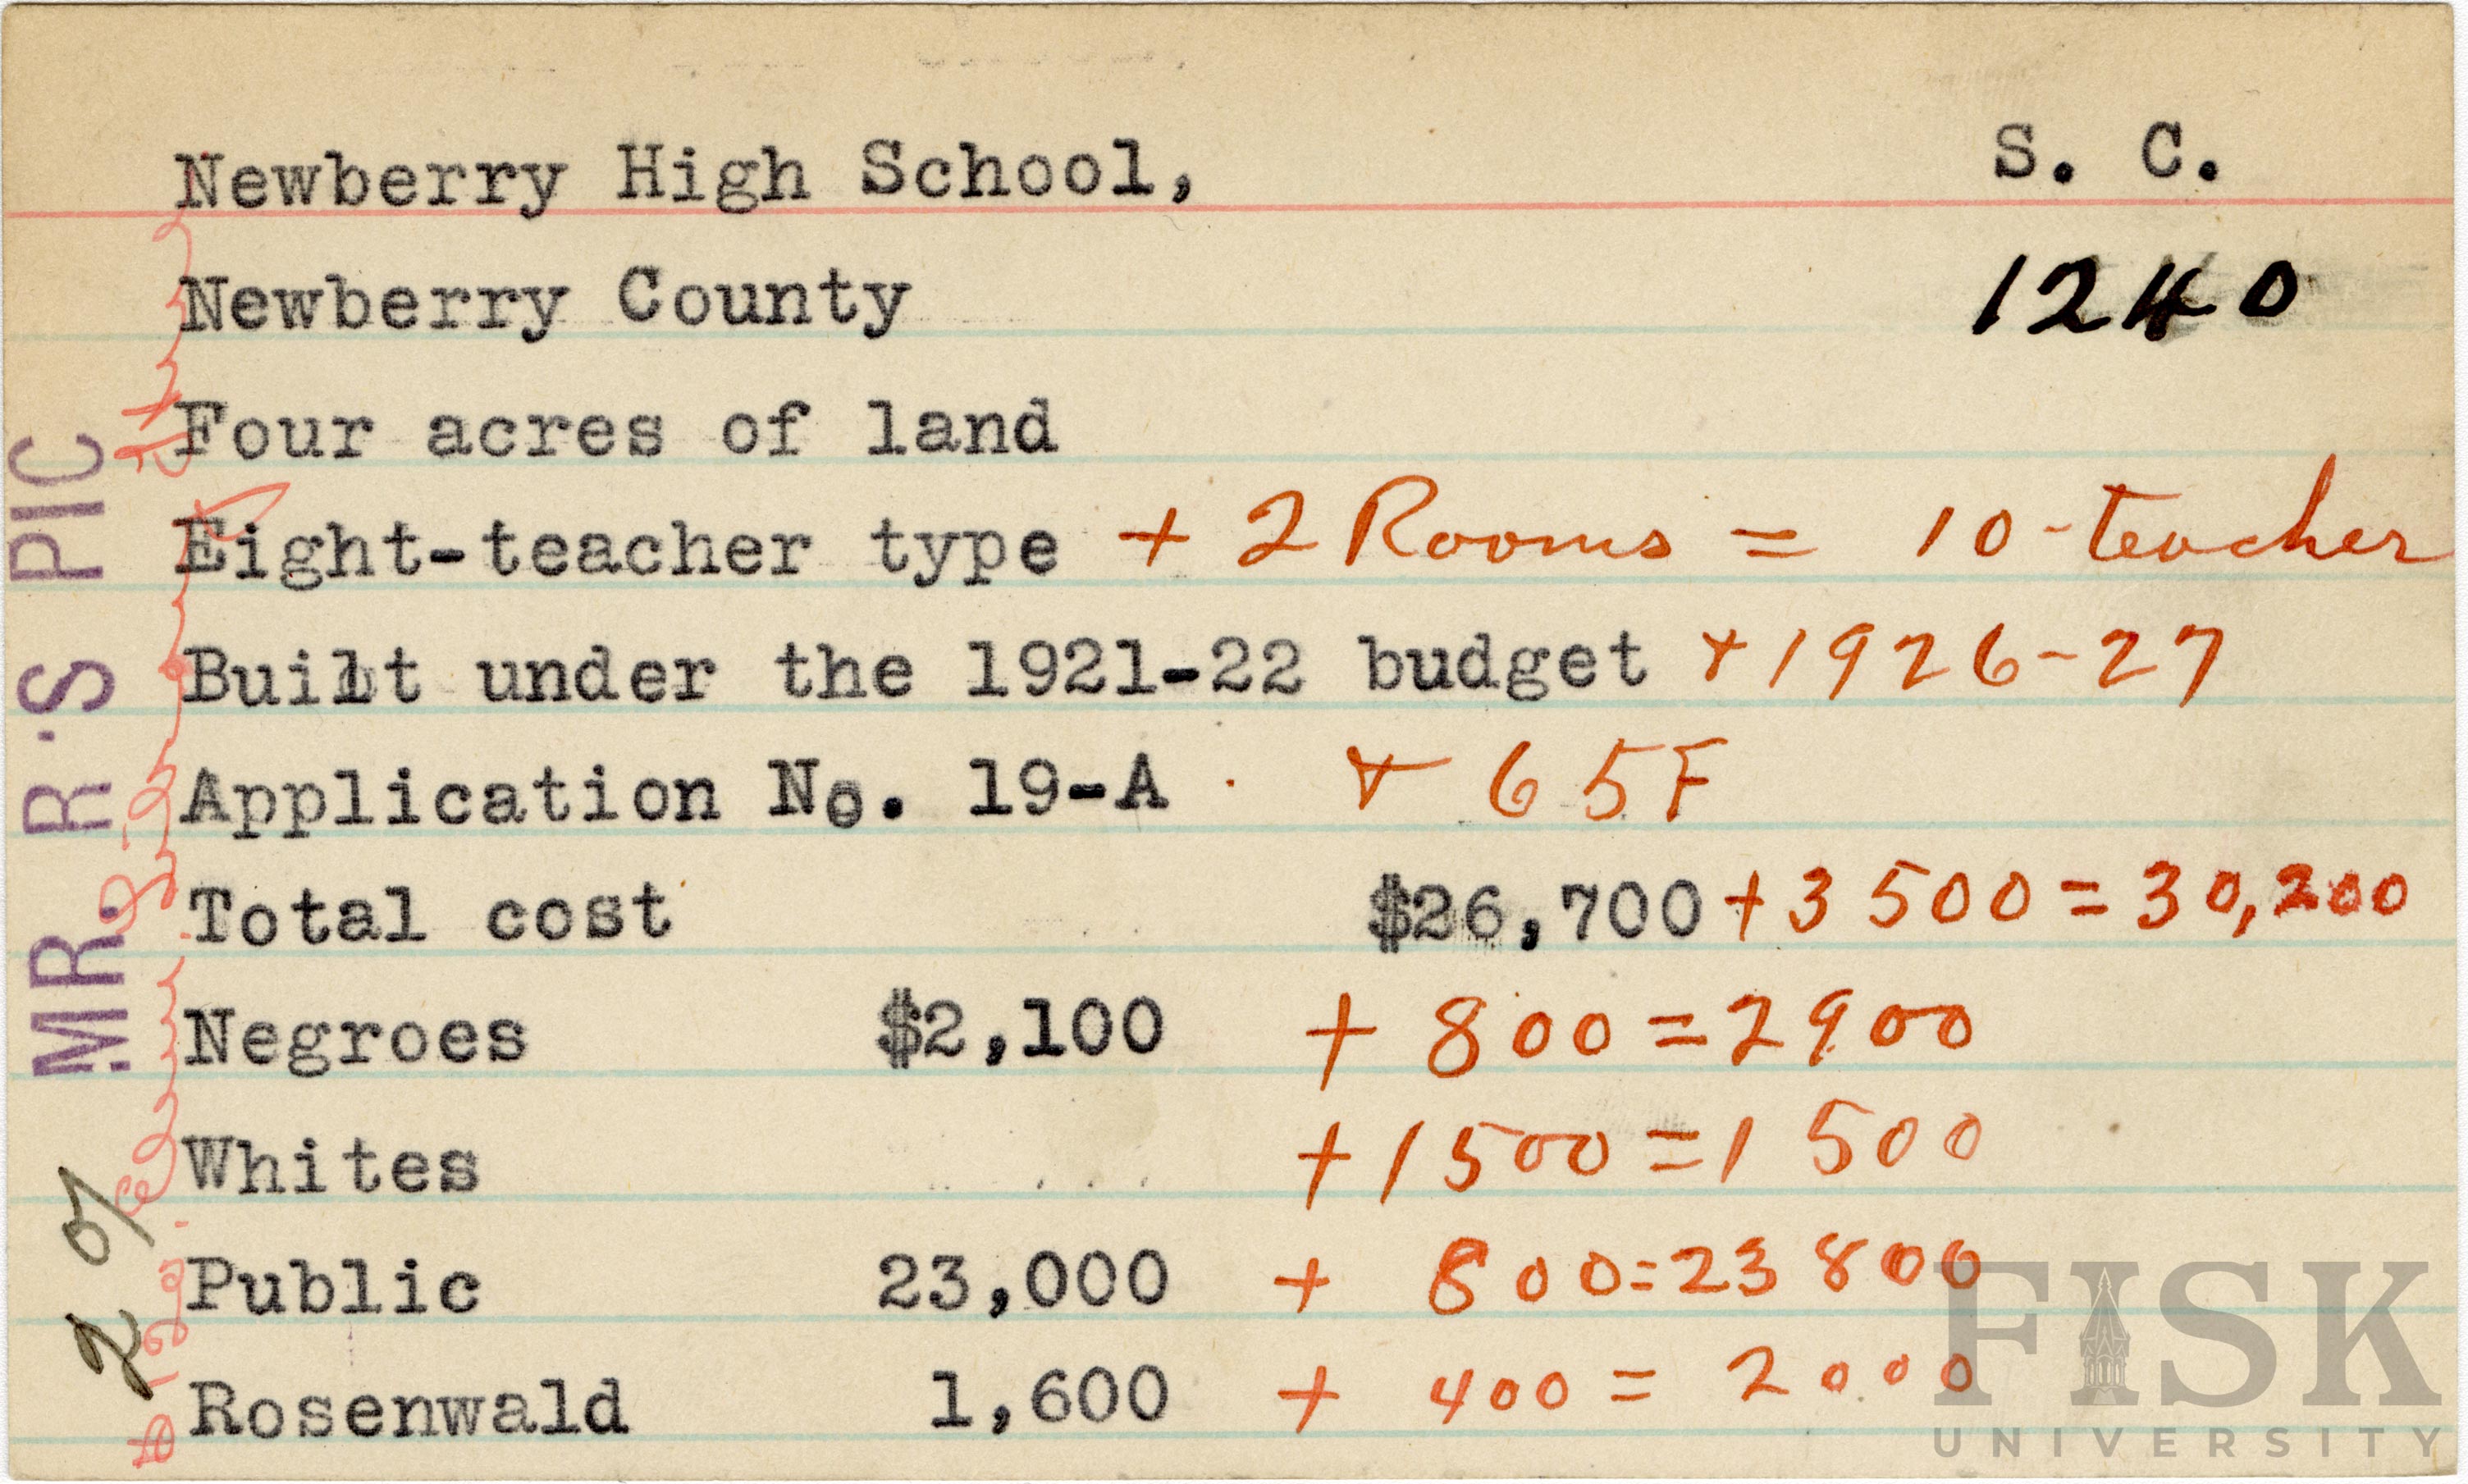 Newberry High School, S. C.
Newberry County 1240
Four acres of land
Eight-teacher type + 2 Rooms = 10-teacher
Built under the 1921-22 budget + 1926-27
Application No. 19-A + 65F
Total cost $26,700 + 3500 = 30,200
Negroes $2,100 + 800 = 2900
Whites + 1500 = 1500
Public 23,000 + 800 = 23800
Rosenwald 1,600 + 400 = 2000
MR. R·S PIC
FISK
UNIVERSITY